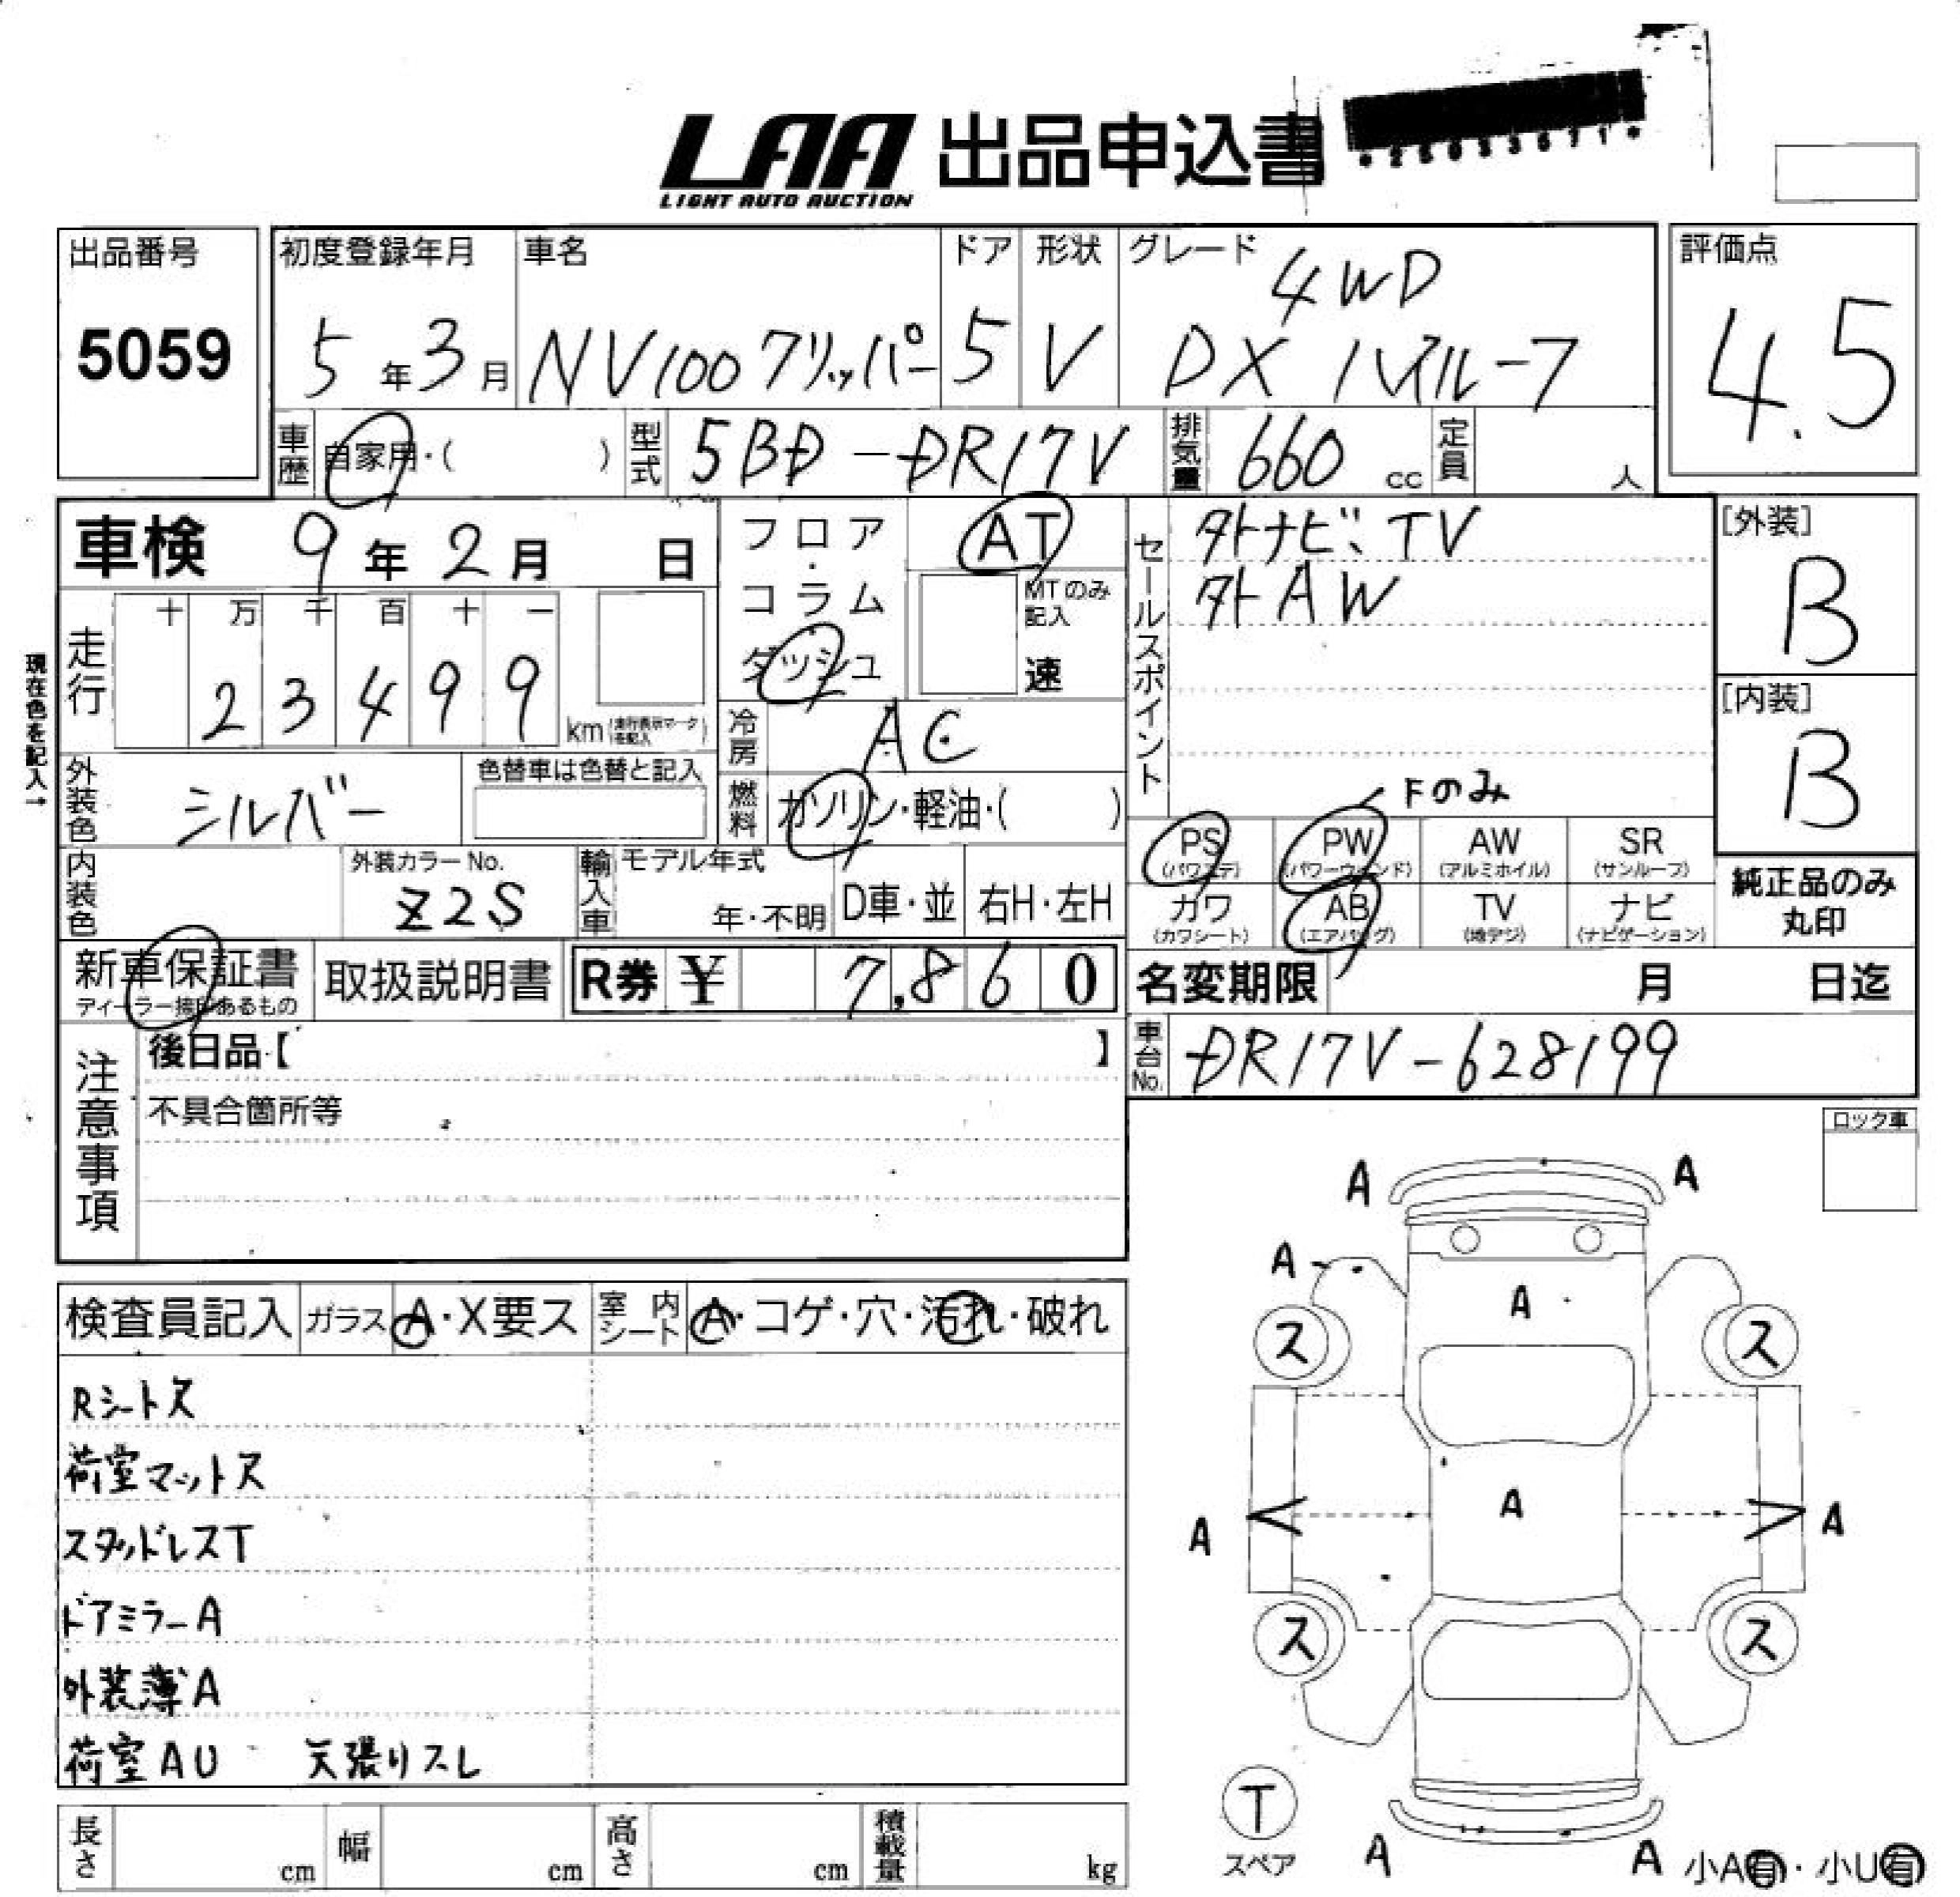 LAA 出品申込書
LIGHT AUTO AUCTION
*25033671*
出品番号
5059
初度登録年月
5年3月
車名
NV100クリッパー
ドア
5
形状
V
グレード
4WD
DX ハイルーフ
評価点
4.5
車歴 自家用・( )
型式 5BD-DR17V
排気量 660 cc
定員 人
車検 9年2月 日
現在色を記入→
走行
十 万 千 百 十 一
2 3 4 9 9 km (走行表示マークを記入)
フロア・コラム
ダッシュ
AT
MTのみ記入
速
冷房 AC
燃料 ガソリン・軽油・( )
セールスポイント
外ナビ、TV
外AW
Fのみ
[外装]
B
[内装]
B
外装色 シルバー
色替車は色替と記入
内装色
外装カラーNo.
Z2S
輸入車
モデル年式
年・不明
D車・並
右H・左H
PS (パワステ)
PW (パワーウィンド)
AW (アルミホイル)
SR (サンルーフ)
カワ (カワシート)
AB (エアバッグ)
TV (地デジ)
ナビ (ナビゲーション)
純正品のみ
丸印
新車保証書
ディーラー捺印あるもの
取扱説明書
R券 ¥ 7,860
名変期限 月 日迄
車台No. DR17V-628199
注意事項
後日品【 】
不具合箇所等
ロック車
検査員記入
ガラス A・X要ス
室内シート A・コゲ・穴・汚れ・破れ
Rシートス
荷室マットス
スタッドレスT
ドアミラーA
外装薄A
荷室AU 天張りスレ
A A
A
A
ス ス
A
A A
ス ス
T
スペア
A A
小A有・小U有
長さ cm
幅 cm
高さ cm
積載量 kg